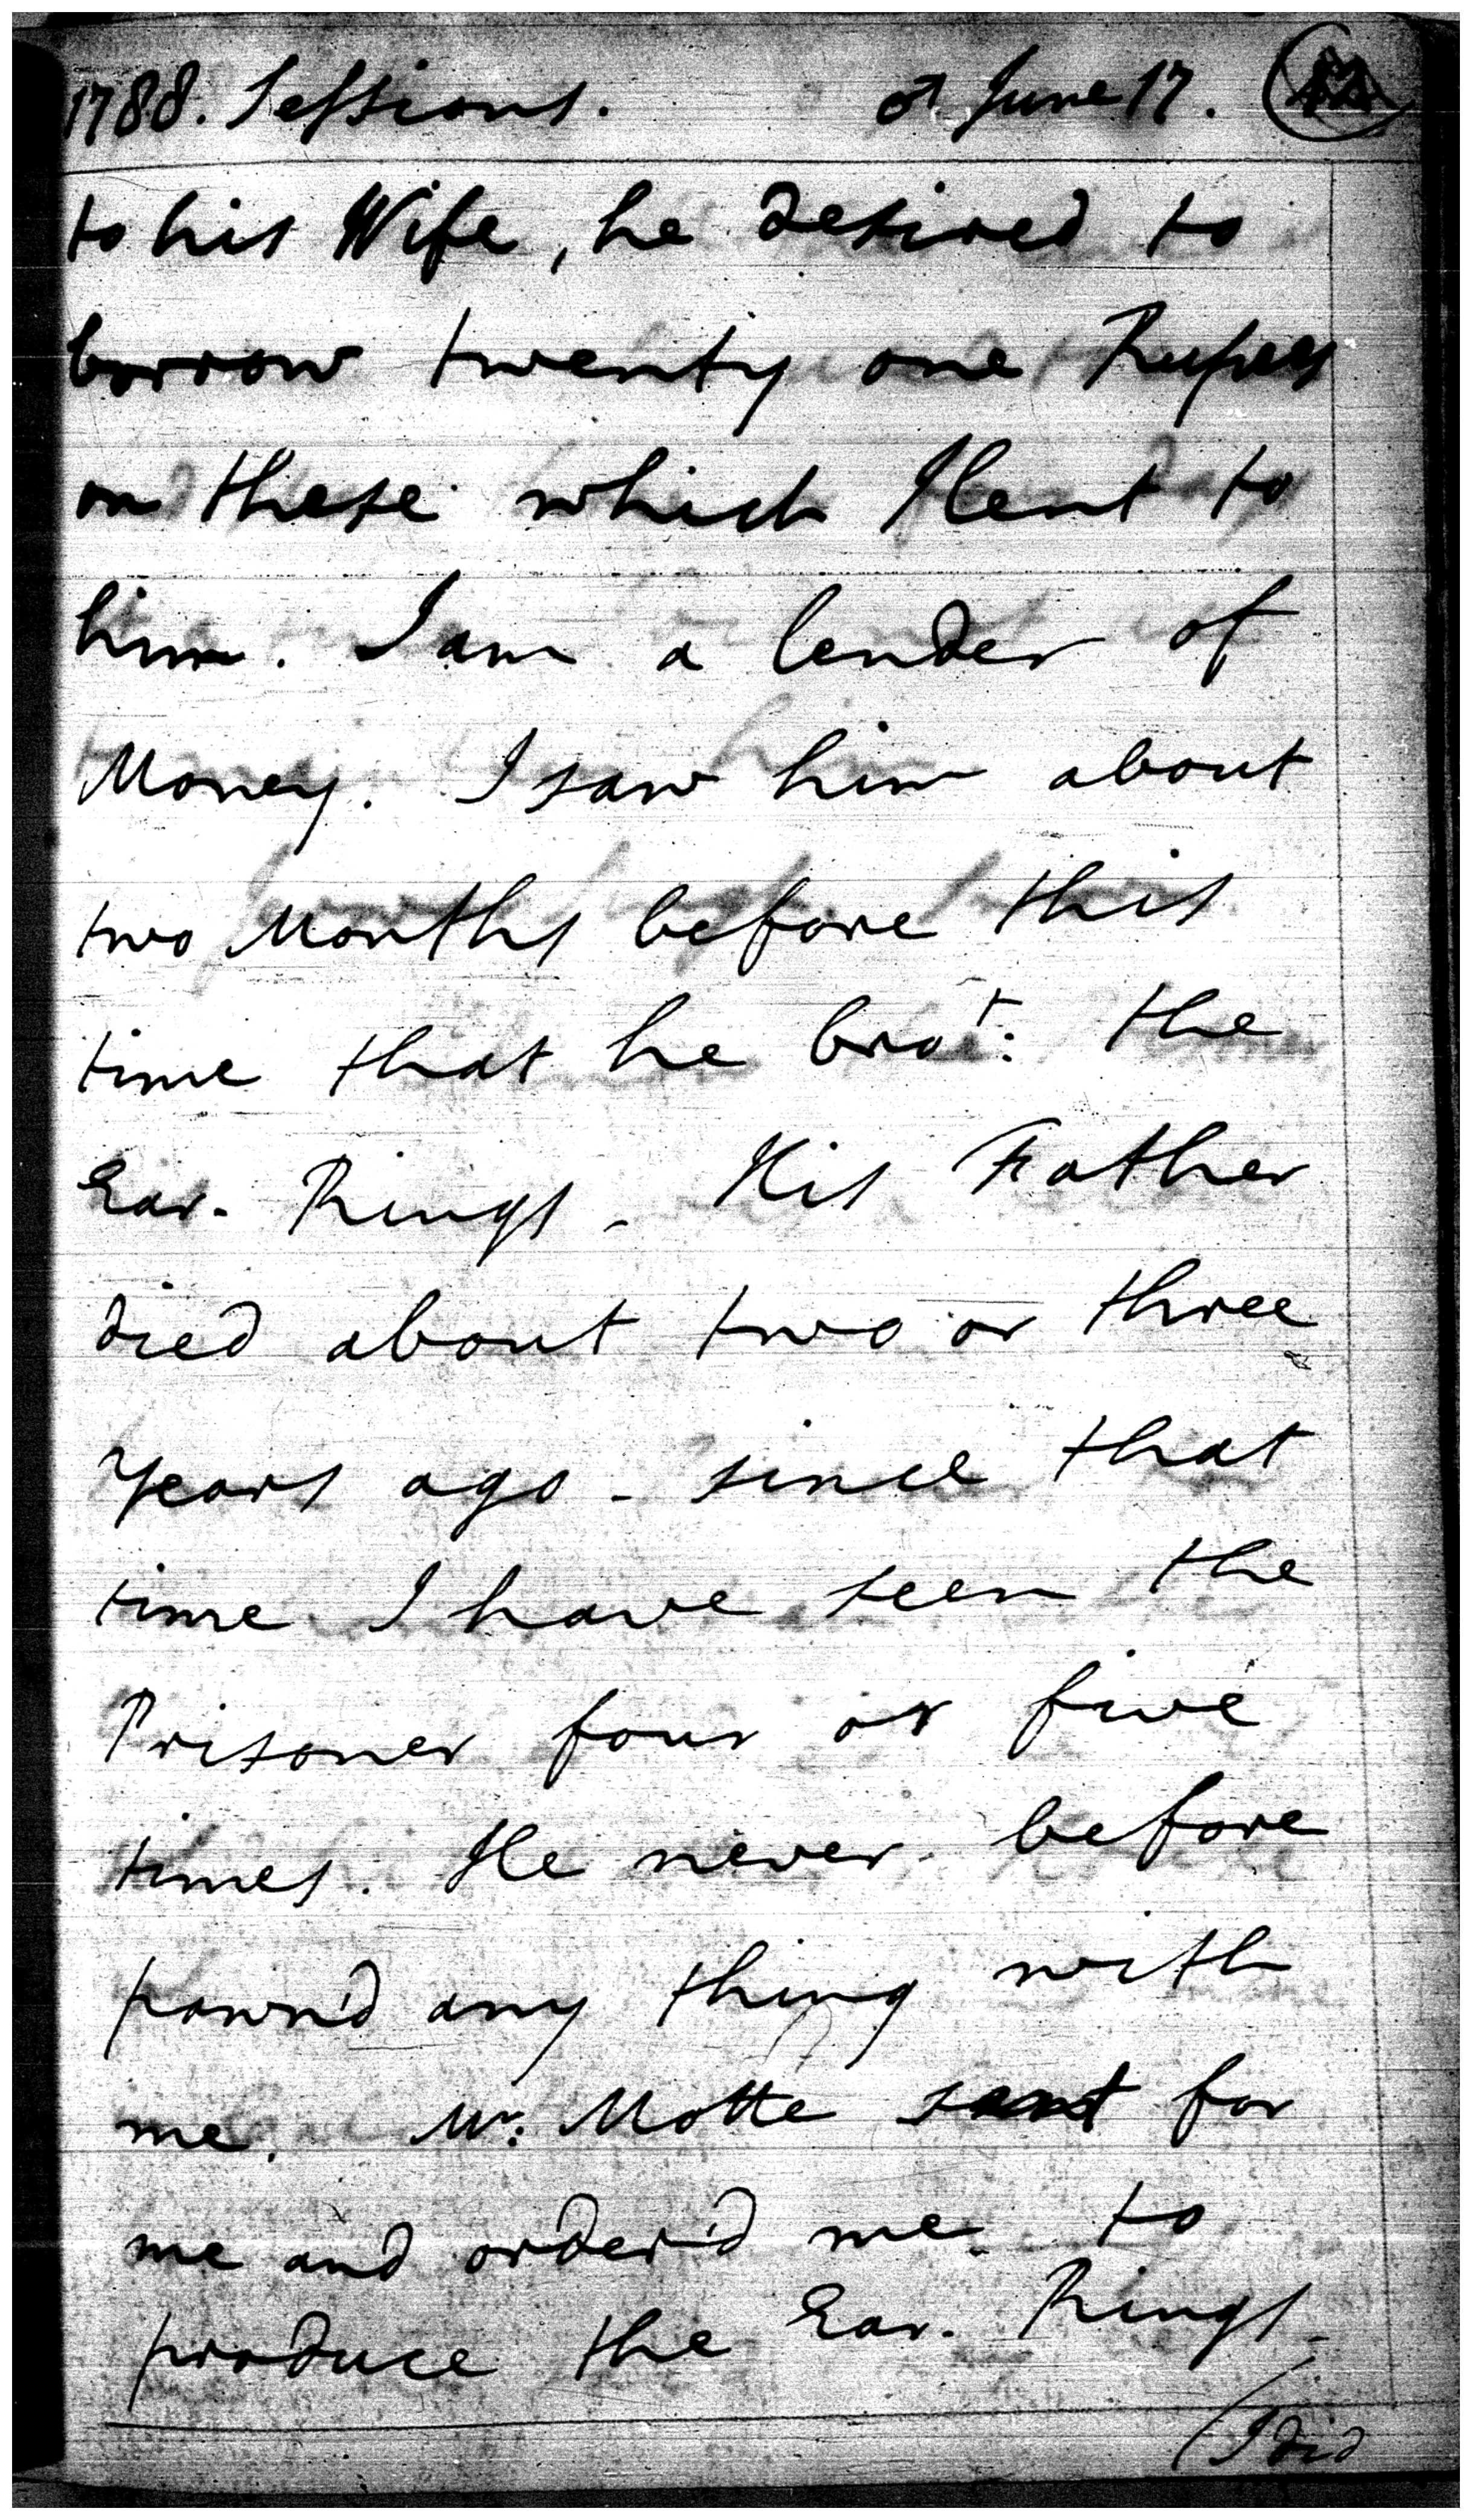 1788. Sessions. ♂ June 17.
to his Wife, he desired to
borrow twenty one Rupees
on these which I lent to
him. I am a lender of
Money. I saw him about
two Months before this
time that he bro.t: the
Ear-Rings - His Father
died about two or three
Years ago - since that
time I have seen the
Prisoner four or five
times. He never before
pawn'd any thing with
me. Mr: Motte sent for
me and order'd me to
produce the Ear-Rings -
/I did